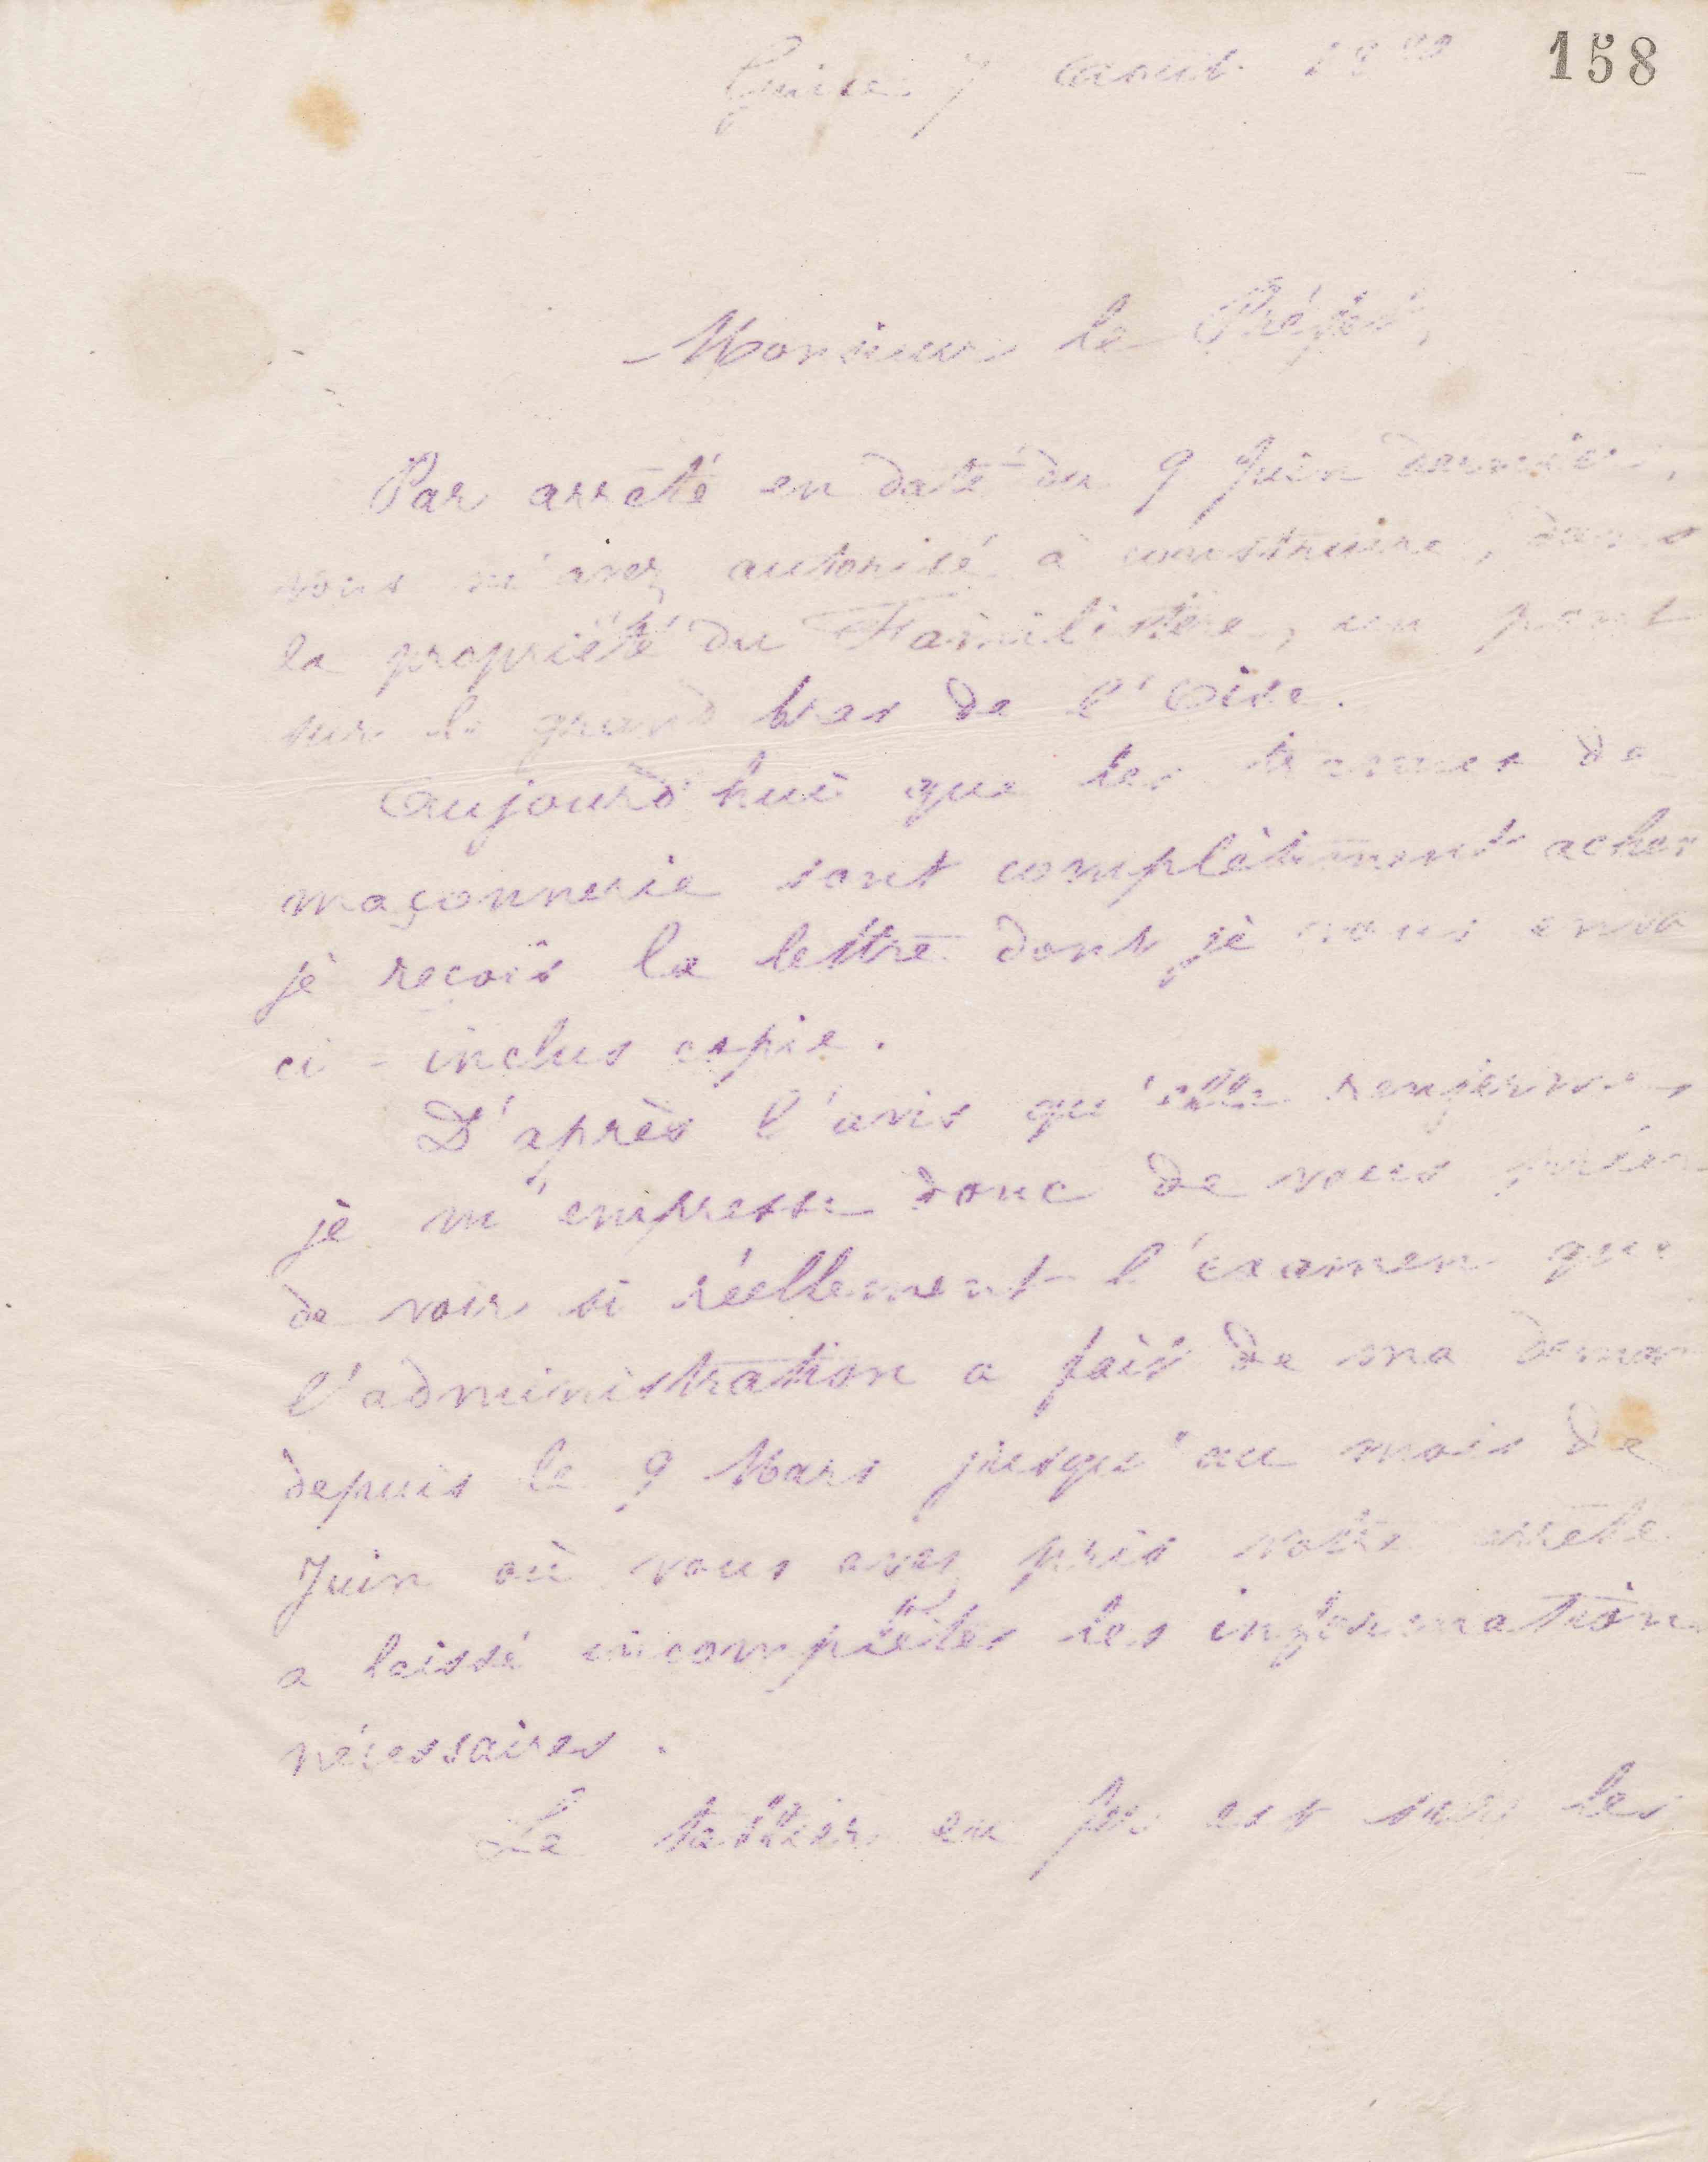 158
Guise 7 Aout 18
Monsieur le Préfet,
Par arrêté en date du 9 Juin dernier,
vous m'avez autorisé à construire, dans
la propriété du Familistère, un pont
sur le grand bras de l'Oise.
Aujourd'hui que les de
maçonnerie sont complètement achev
je reçois la lettre dont je vous envo
ci-inclus copie.
D'après l'avis qu'elle renferme
je m'empresse donc de vous prier
de voir si réellement l'examen que
l'administration a fait de ma deman
depuis le 9 Mars jusqu'au mois de
Juin où vous avez pris votre arrêté
a laissé incomplètes les information
nécessaires.
Le tablier en fer est sur les